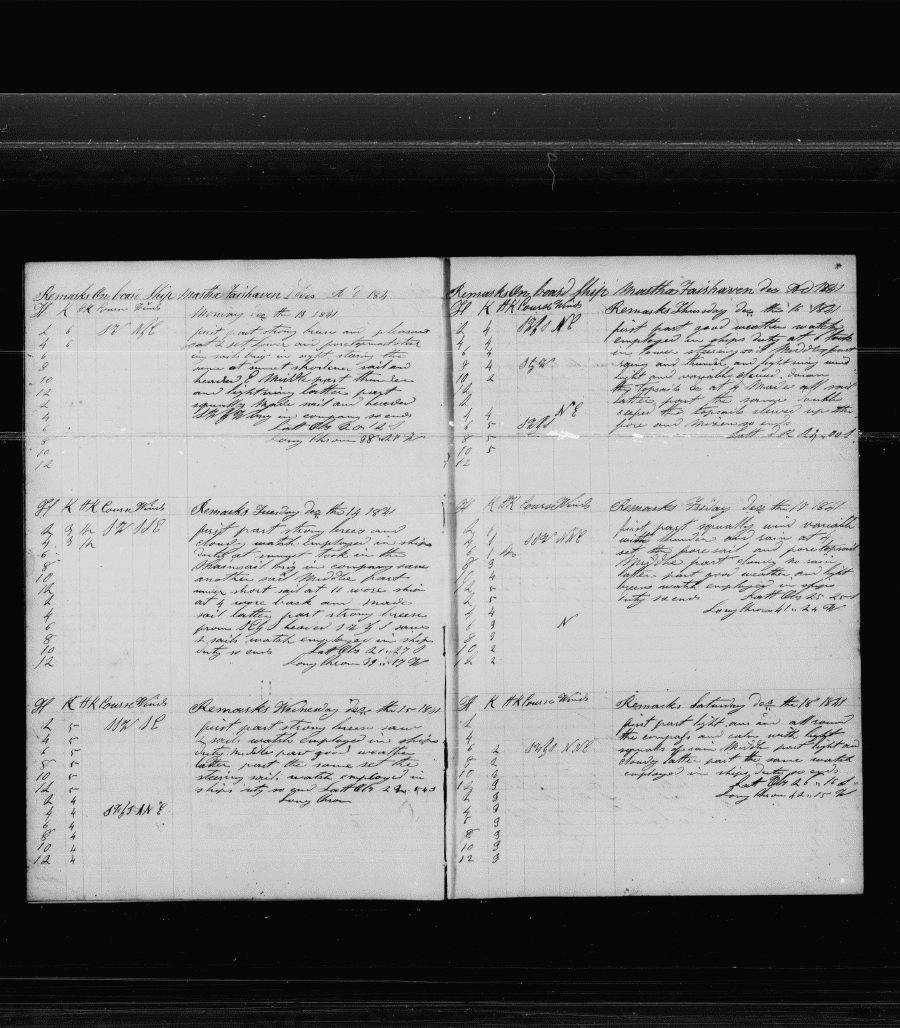 Remarks On board Ship Martha Fairhaven A D 184
H K HK Course Winds Monday Dec the 13 1841
2 6 SW NE first part strong breese and pleasant
4 6 sail set lower and foretopmast stu
6 in sails brig in sight stering the
8 same at sunset shortened sail and
10 headed E Middle part thunder
12 and lightning latter part
2 squally Made sail and headed
4 brig in company so ends
6 Latt Obs 20 12 S
8 Long Chron 38 28 W
10
12
H K HK Course Winds Remarks Tuesday Dec the 14 1841
2 9 1/2 SW SSE first part strong breese and
4 9 1/2 cloudy watch employed in ships
6 duty at sunset took in the
8 Mainsail brig in company saw
10 another sail Middle part
12 under short sail at 11 wore ship
2 at 4 wore back and made
4 sail latter part strong breese
6 from headed saw
8 2 sails watch employed in ships
10 duty so ends Latt Obs 21 27 S
12 Long Chron 39 17 W
H K HK Course Winds Remarks Wednesday Dec the 15 1841
2 5 SSW SE first part strong breese saw
4 5 sail watch employed in ships
6 5 duty Middle part good weather
8 5 latter part the same set the
10 5 steering sails watch employed in
12 5 ships duty so end Latt Obs 54 S
2 4 Long Chron
4 4 NE
6 4
8 4
10 4
12 4
Remarks On board Ship Martha Fairhaven Dec A D 1841
H K HK Course Winds Remarks Thursday Dec the 16 1841
2 4 NE first part good weather watch
4 4 employed in ships duty at 6 took
6 4 in lower steering sail Middle part
8 4 rainy and thunder and lightning wind
10 2 light and variable clewed down
12 the topsails at 4 Made all sail
2 latter part the same
4 4 NE the topsails clewed up the
6 5 fore and Mizen so ends
8 5 Latt Obs
10 5
12
H K HK Course Winds Remarks Friday Dec the 17 1841
2 first part squally wind variable
4 SSW NNE with thunder and rain at 4
6 set the fore sail and fore topsail
8 9 Middle part cloudy no rain
4 latter part good weather and light
12 5 breese watch employed in ships
2 5 duty so ends Latt Obs 25 25 S
4 Long Chron 41 24 W
9 N
8
10 2
12 2
H K HK Course Winds Remarks Saturday Dec the 18 1841
2 first part light airs all round
4 the compass and calm with light
6 2 NNE squalls of rain Middle part light and
8 2 cloudy latter part the same watch
10 2 employed in ships duty so ends
12 9 Latt Obs 26 16 S
2 9 Long Chron 42 15 W
4 9
6 9
8 9
10 9
12 9